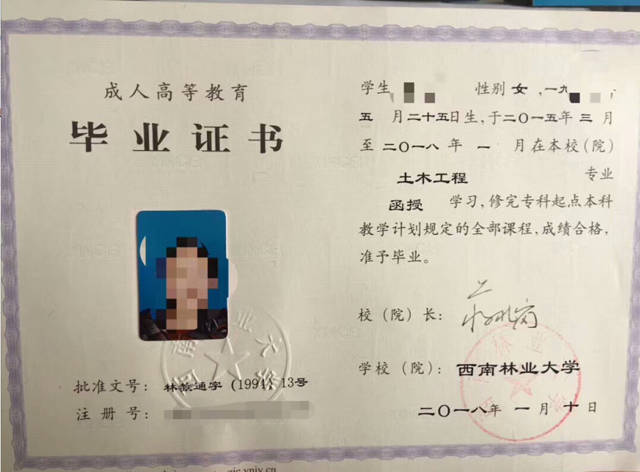 成人高等教育
毕业证书
批准文号：林教通字（1994）13号
注册号：
学生 性别 女，一九
五 月二十五日生，于二〇一五年 三 月
至二〇一八 年 一 月在本校（院）
土木工程 专业
函授 学习，修完专科起点本科
教学计划规定的全部课程，成绩合格，
准予毕业。
校（院）长：
学校（院）：西南林业大学
二〇一八年 一 月 十 日